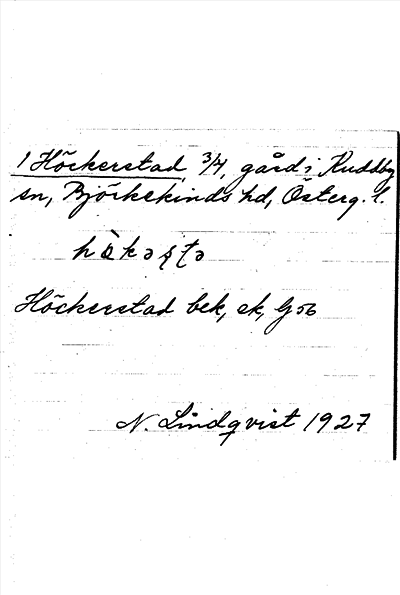 1 Höckerstad, 3/4, gård i Kuddby
sn, Björkekinds hd, Österg. l.
Höckerstad bek, ek, G 56
N. Lindqvist 1927